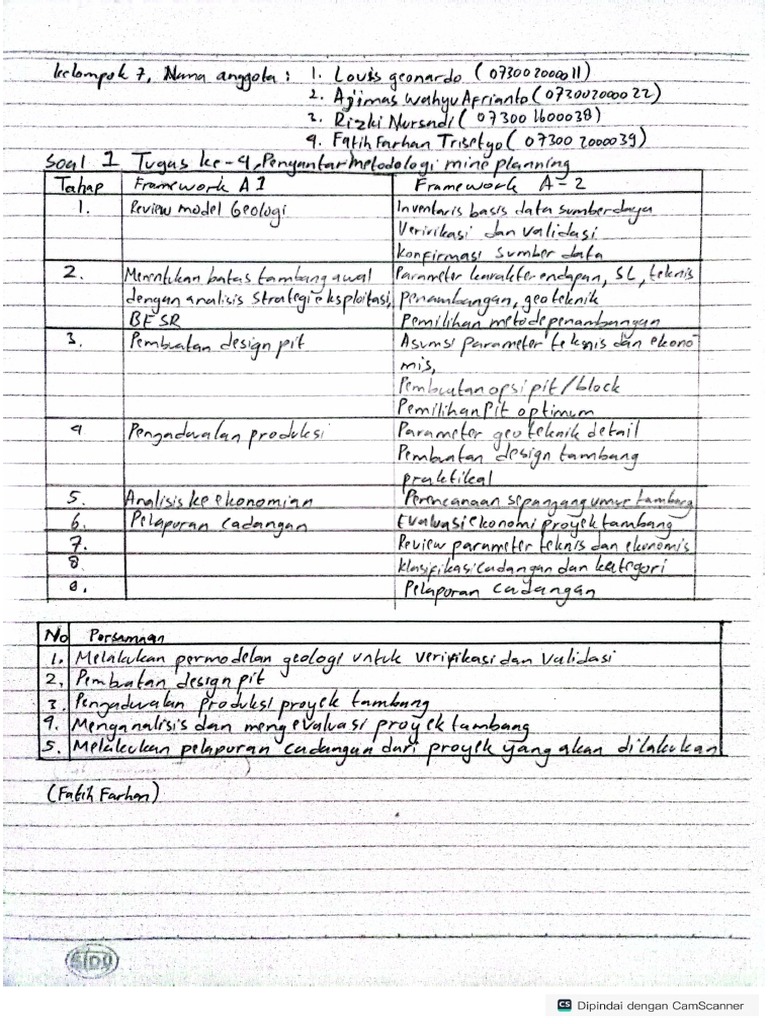 kelompok 7, Nama anggota : 1. Louis geonardo ( 073002000011)
2. Ajimas Wahyu Afrianto ( 072002000022)
3. Rizki Nursadi ( 07300 1600038)
4. Fatih Farhan Trisetyo ( 07300 2000039)
Soal 1 Tugas ke-4, Pengantar metodologi mine planning
Tahap Framework A 1 Framework A-2
1. Review model Geologi Inventaris basis data sumberdaya
Verivikasi dan validasi
konfirmasi sumber data
2. Menentukan batas tambang awal Parameter karakter endapan, SL, teknis
dengan analisis strategi eksploitasi, penambangan, geoteknik
BESR Pemilihan metode penambangan
3. Pembuatan design pit Asumsi parameter teknis dan ekono
mis,
Pembuatan opsi pit/block
Pemilihan Pit optimum
4 Pengadwalan produksi Parameter geoteknik detail
Pembuatan design tambang
praktikal
5. Analisis ke ekonomian Perencanaan sepangang umur tambang
6. Pelaporan cadangan Evaluasi ekonomi proyek tambang
7. Review parameter teknis dan ekonomis
8 klasifikasi cadangan dan kategori
9. Pelaporan cadangan
No Persamaan
1. Melakukan permodelan geologi untuk verifikasi dan validasi
2, Pembuatan design pit
3. Pengadwalan Produksi proyek tambang
4. Menganalisis dan mengevaluasi proyek tambang
5. Melakukan pelaporan cadangan dari proyek yang akan dilakukan
(Fatih Farhan)
SIDU
CS Dipindai dengan CamScanner